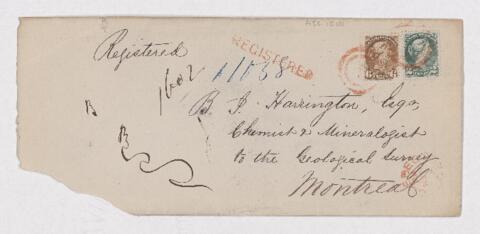 Registered
REGISTERED
1602
11038
B
B
B. J. Harrington, Esq,
Chemist & Mineralogist
to the Geological Survey
Montreal